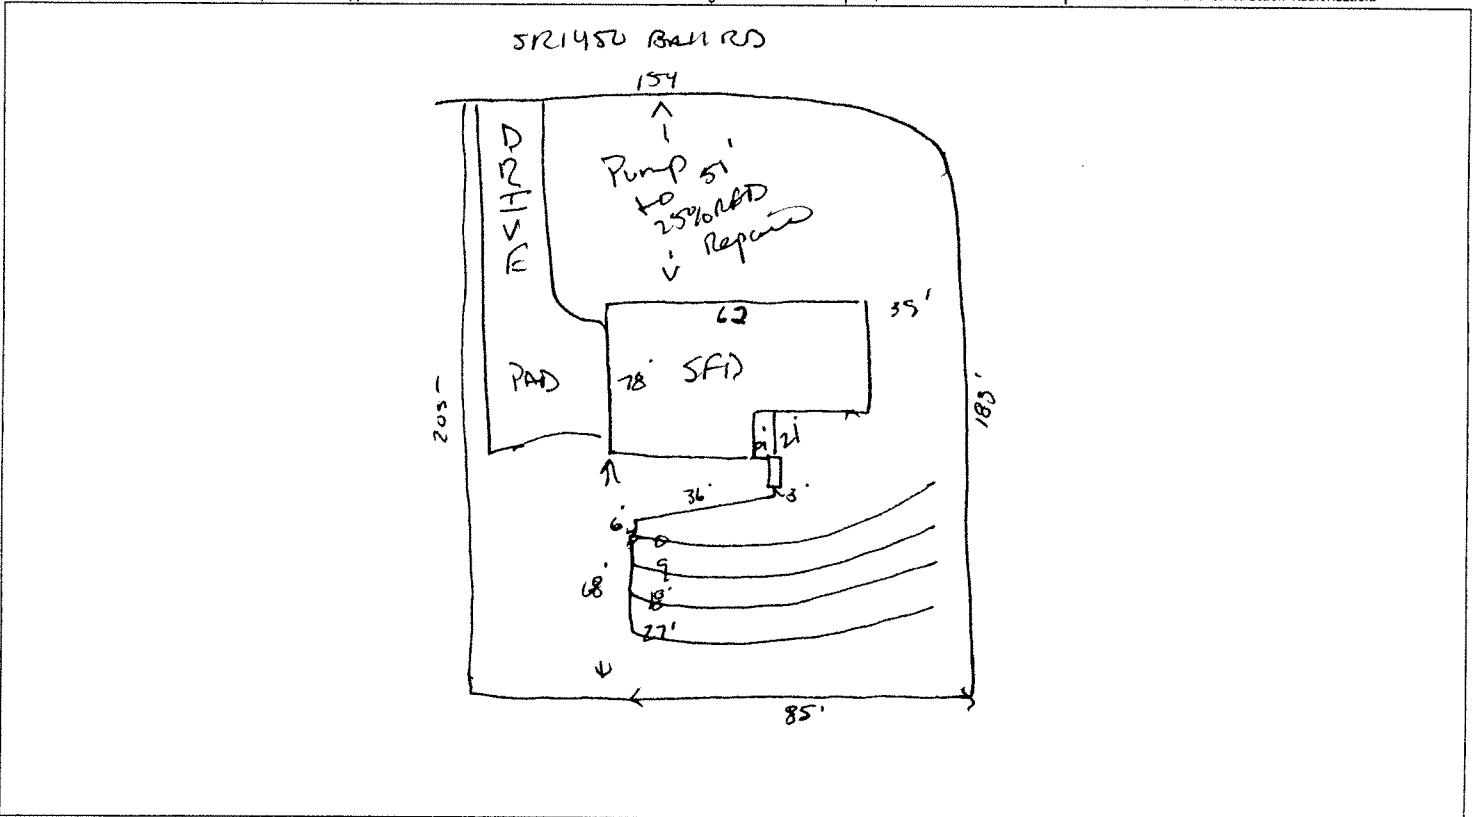 SR1450 Ball RD
154
DRIVE
Pump 51'
to
25% RED
Repair
62
35'
PAD
78'
SFD
205
185'
21'
36'
3'
6'
9
68'
18'
27'
85'